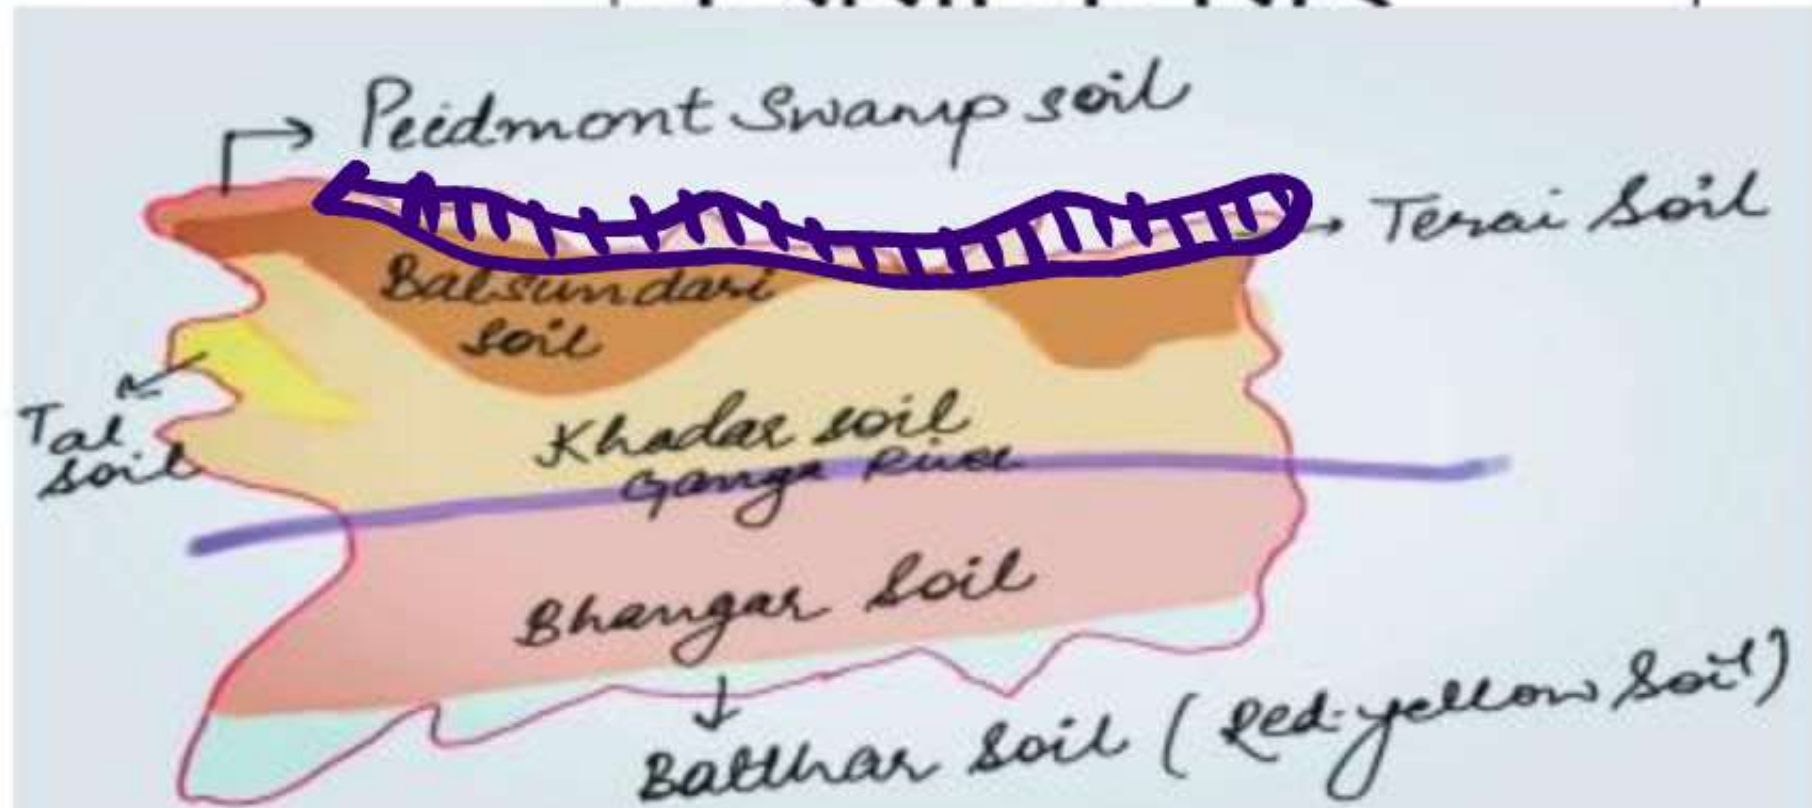 Peidmont Swamp soil
Terai Soil
Balsundari
Soil
Tal
soil
Khadar soil
Ganga River
Bhangar Soil
Balthar Soil (Red-yellow Soil)